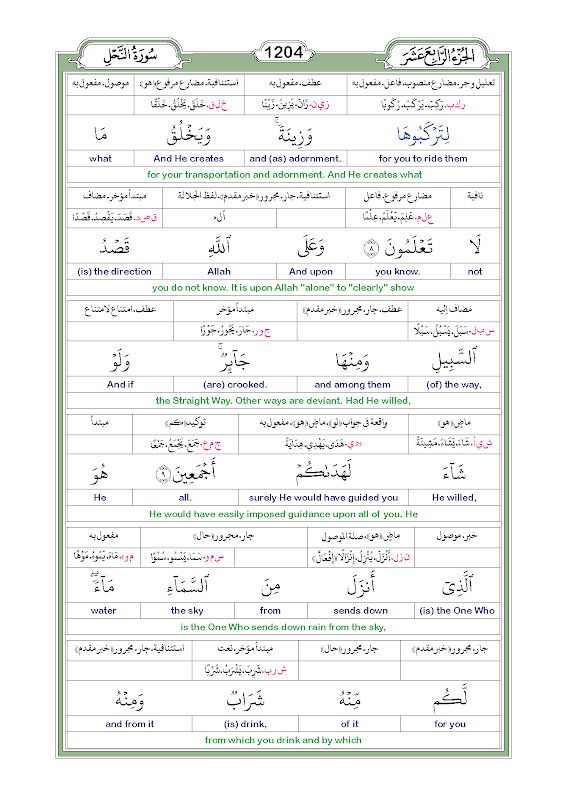 الجزء الرابع عشر 1204 سورة النحل
تعليل وجر، مضارع منصوب، فاعل، مفعول به عطف، مفعول به استئنافية، مضارع مرفوع «هو» موصول، مفعول به
ر ك ب، رَكِبَ، يَرْكَبُ، رُكُوبًا ز ي ن، زَانَ، يَزِينُ، زَيْنًا خ ل ق، خَلَقَ، يَخْلُقُ، خَلْقًا
لِتَرْكَبُوهَا وَزِينَةً ۚ وَيَخْلُقُ مَا
for you to ride them and (as) adornment. And He creates what
for your transportation and adornment. And He creates what
نافية مضارع مرفوع، فاعل استئنافية، جار، مجرور «خبر مقدم»، لفظ الجلالة مبتدأ مؤخر، مضاف
ع ل م، عَلِمَ، يَعْلَمُ، عِلْمًا أ ل ه ق ص د، قَصَدَ، يَقْصِدُ، قَصْدًا
لَا تَعْلَمُونَ ٨ وَعَلَى ٱللَّهِ قَصْدُ
not you know. And upon Allah (is) the direction
you do not know. It is upon Allah "alone" to "clearly" show
مضاف إليه عطف، جار، مجرور «خبر مقدم» مبتدأ مؤخر عطف، امتناع لامتناع
س ب ل، سَبَلَ، يَسْبُلُ، سَبْلًا ج و ر، جَارَ، يَجُورُ، جَوْرًا
ٱلسَّبِيلِ وَمِنْهَا جَآئِرٌ ۚ وَلَوْ
(of) the way, and among them (are) crooked. And if
the Straight Way. Other ways are deviant. Had He willed,
ماض «هو» واقعة في جواب «لو»، ماض «هو»، مفعول به توكيد «كم» مبتدأ
ش ي أ، شَاءَ، يَشَاءُ، مَشِيئَةً ه د ي، هَدَى، يَهْدِي، هِدَايَةً ج م ع، جَمَعَ، يَجْمَعُ، جَمْعًا
شَآءَ لَهَدَىٰكُمْ أَجْمَعِينَ ٩ هُوَ
He willed, surely He would have guided you all. He
He would have easily imposed guidance upon all of you. He
خبر، موصول ماض «هو»، صلة الموصول جار، مجرور «حال» مفعول به
ن ز ل، أَنْزَلَ، يُنْزِلُ، إِنْزَالًا «إِفْعَالٌ» س م و، سَمَا، يَسْمُو، سُمُوًّا م و ه، مَاهَ، يَمُوهُ، مَوْهًا
ٱلَّذِىٓ أَنزَلَ مِنَ ٱلسَّمَآءِ مَآءً ۖ
(is) the One Who sends down from the sky water
is the One Who sends down rain from the sky,
جار، مجرور «خبر مقدم» جار، مجرور «حال» مبتدأ مؤخر، نعت استئنافية، جار، مجرور «خبر مقدم»
ش ر ب، شَرِبَ، يَشْرَبُ، شُرْبًا
لَّكُم مِّنْهُ شَرَابٌ وَمِنْهُ
for you of it (is) drink, and from it
from which you drink and by which